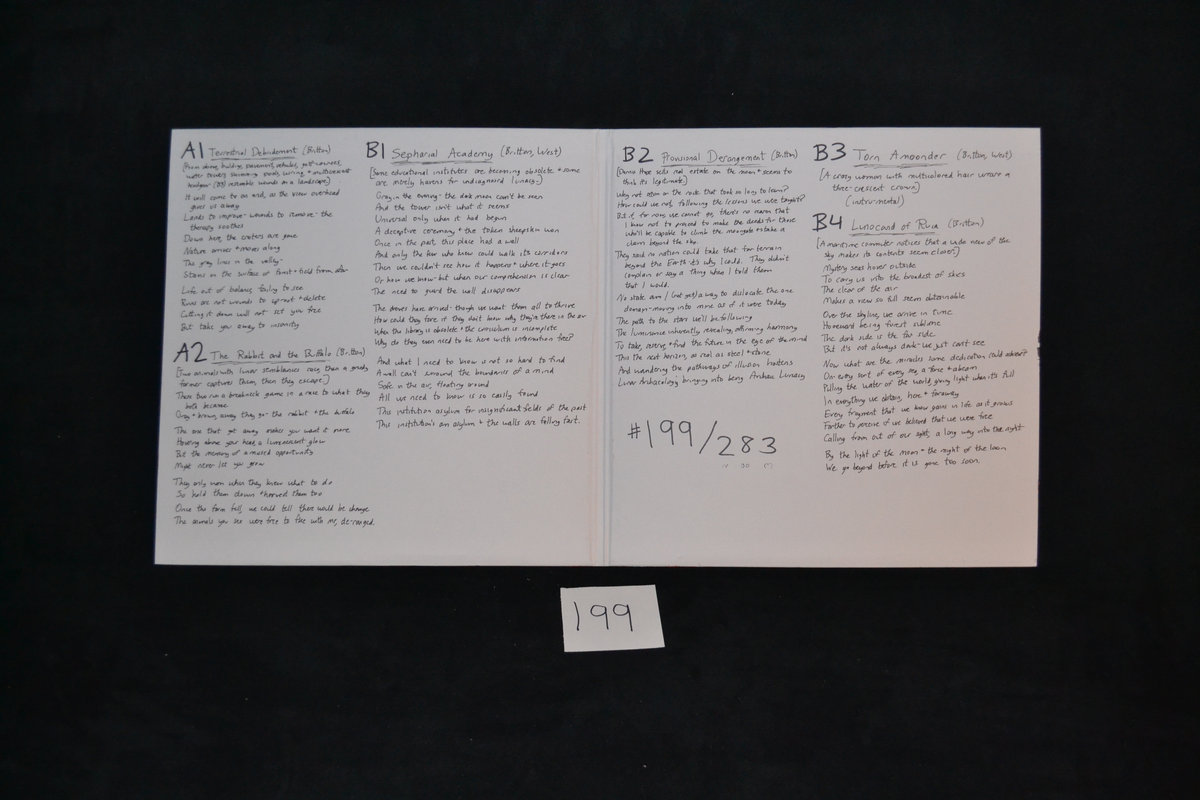 A1 Terrestrial Debridement (Britton)
(From above, buildings, pavement, vehicles, golf courses,
water towers, swimming pools, wiring + multivalent
resemble wounds on a landscape.)
It will come to an end, as the view overhead
gives us away
Lands to improve - wounds to remove - the
therapy soothes
Down here, the craters are gone
Nature arrives + moves along
The gray lines in the valley -
Stains on the surface of forest + field from afar
Life out of balance, failing to see
Ruins are not wounds to sprout + delete
Cutting it down will not set you free
But take you away to insanity
A2 The Rabbit and the Buffalo (Britton)
[Two animals with lunar semblances race, then a greedy
farmer captures them, then they escape.]
These two run a breakneck game in a race to what they
both became
Gray + brown, away they go - the rabbit + the buffalo
The one that got away makes you want it more
Hovering above your head, a luminescent glow
But the memory of a missed opportunity
Might never let you grow
They only won when they knew what to do
So hold them down + hooved them too
Once the farm fell, we could tell there would be change
The animals you see were free to flee with me, de-ranged.
B1 Sepharial Academy (Britton, West)
[Some educational institutes are becoming obsolete + some
are merely havens for undiagnosed lunacy.]
Gray in the evening - the dark moon can't be seen
And the tower isn't what it seems
Universal only when it had begun
A deceptive ceremony + the token sheepskin won
Once in the past, this place had a wall
And only the few who knew could walk its corridors
Then we couldn't see how it happens + where it goes
Or how we know - but when our comprehension is clear
The need to guard the wall disappears
The drones have arrived - though we want them all to thrive
How could they fare if they don't know why they're there in the air
When the library is obsolete + the curriculum is incomplete
Why do they even need to be here with information free?
And what I need to know is not so hard to find
A wall can't surround the boundaries of a mind
Safe in the air, floating around
All we need to know is so easily found
This institution asylum for insignificant fields of the past
This institution's an asylum + the walls are falling fast.
B2 Provisional Derangement (Britton)
[Dennis Hope sells real estate on the moon + seems to
think it's legitimate.]
Why not atom on the rock that took so long to learn?
How could we not, following the lessons we were taught?
But if for now we cannot go, there's no reason that
I know not to proceed to make the deeds for those
who'll be capable to climb the moongate + stake a
claim beyond the sky.
They said no nation could take that far terrain
beyond the Earth - it's why I could. They didn't
complain or say a thing when I told them
that I would.
No state am I (not yet) a way to dislocate the one
domain - moving into mine as if it were today
The path to the stars we'll be following
The luminance inherently revealing, affirming harmony
To take, reserve, + find the future in the eye of the mind
This the next horizon, as real as steel + stone
And wandering the pathways of illusion hastens
Lunar Archaeology bringing into being Archaic Lunacy
#199/283
B3 Torn Amoonder (Britton, West)
[A crazy woman with multicolored hair wears a
three-crescent crown.]
(instrumental)
B4 Lunocond of Rua (Britton)
[A maritime commuter notices that a wide view of the
sky makes its contents seem closer.]
Mystery seas hover outside
To carry us into the broadest of skies
The clear of the air
Makes a view so full seem obtainable
Over the skyline, we arrive in time
Homeward being finest sublime
The dark side is the far side
But it's not always dark - we just can't see
Now what are the miracles some dedication could achieve?
On every sort of every ray a force + a beam
Pulling the water of the world, giving light when it's full
In everything we obtain, here + faraway
Every fragment that we know gains in life as it grows
Farther to perceive if we believed that we were free
Calling from out of our sight, a long way into the night
By the light of the moon + the night of the loon
We go beyond before it is gone too soon.
199